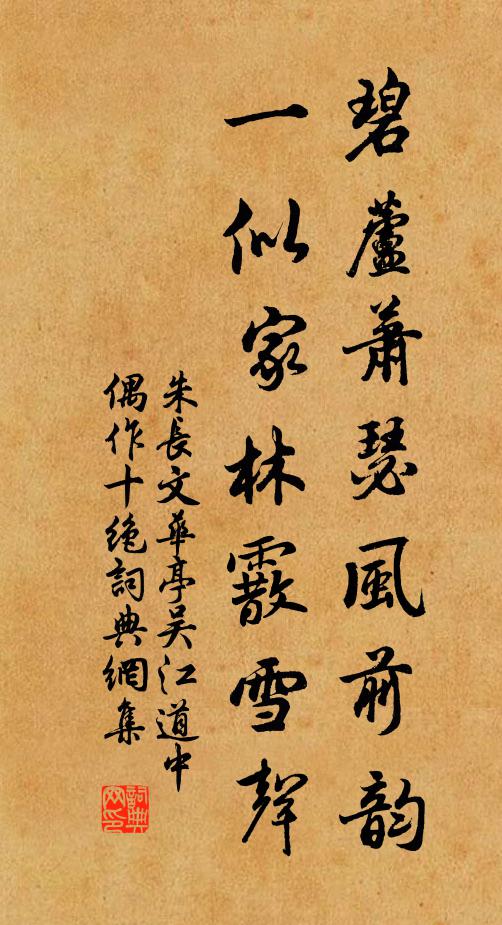 碧蘆蕭瑟風前韵
一似家林霰雪聲
朱長文華亭吴江道中
偶作十绝詞典網集
詞典網印